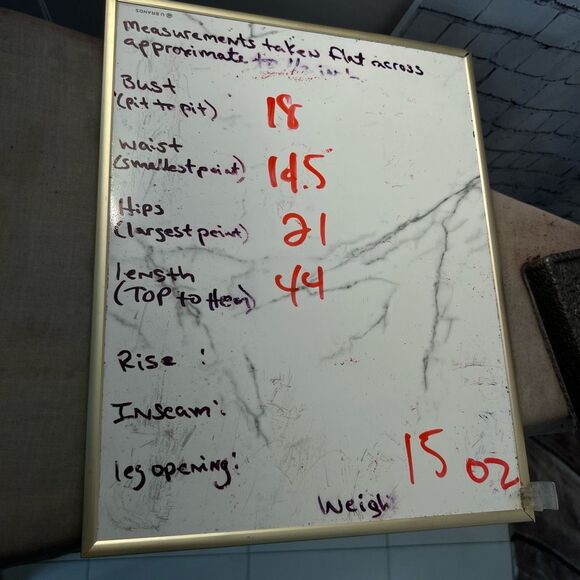 U BRANDS
Measurements taken flat across
approximate
Bust
(pit to pit)
18
Waist
(smallest point)
14.5
Hips
(largest point)
21
length
(TOP to Hem)
44
Rise :
Inseam:
leg opening:
15 oz
Weigh